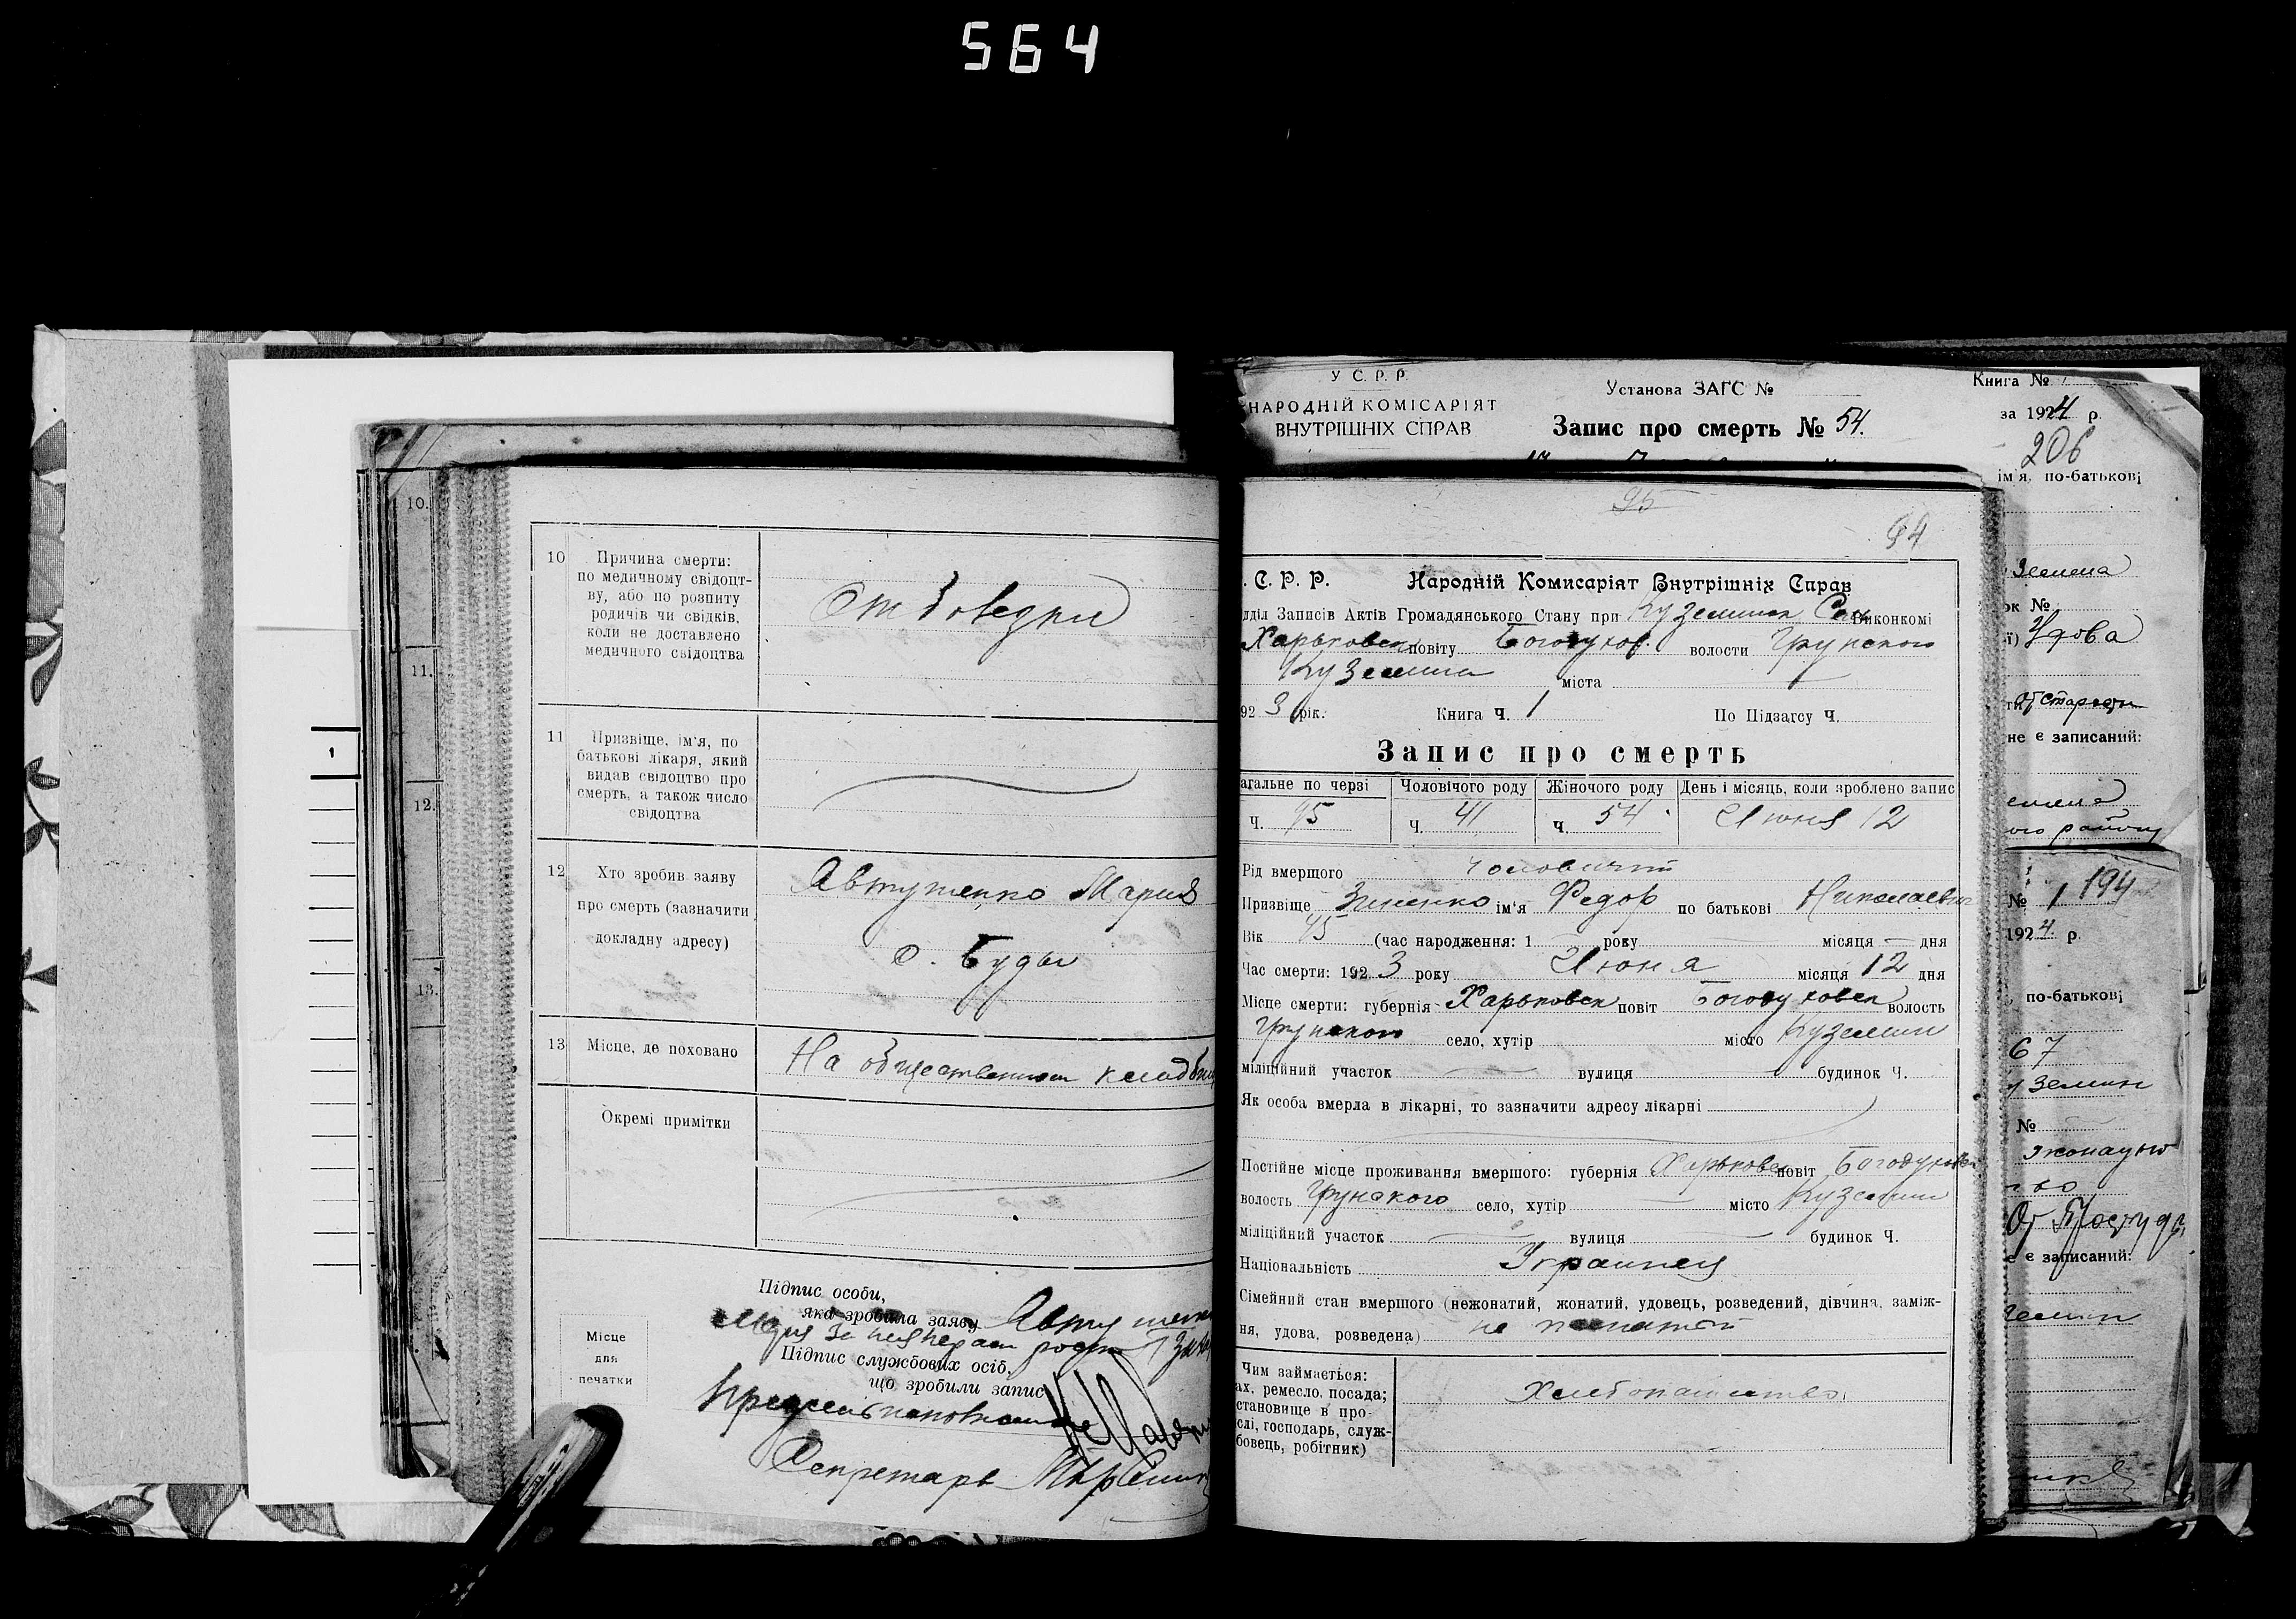 564
У С. Р. Р.
НАРОДНІЙ КОМІСАРІЯТ
ВНУТРІШНІХ СПРАВ
Установа ЗАГС №
Запис про смерть № 54.
Книга №
за 1924 р.
206
ім'я, по-батькові
10.
11.
12.
13.
1
10 Причина смерти:
по медичному свідоцт-
ву, або по розпиту
родичів чи свідків,
коли не доставлено
медичного свідоцтва
От
11 Призвіще, ім'я, по
батькові лікаря, який
видав свідоцтво про
смерть, а також число
свідоцтва
12 Хто зробив заяву
про смерть (зазначити
докладну адресу)
Автушенко Мария
с. Буды
13 Місце, де поховано
На общественном кладбищ
Окремі примітки
Підпис особи,
яка зробила заяву
Підпис службових осіб,
що зробили запис
Місце
для
печатки
Секретарь
95
94
. С. Р. Р. Народній Комисаріят Внутрішніх Справ
дділ Записів Актів Громадянського Стану при Куземинск Сель Виконкомі
Харьковск повіту Богодухов. волости Грунского
Куземин міста
92 3 рік. Книга ч. 1 По Підзагсу ч.
Запис про смерть
агальне по черзі Чоловічого роду Жіночого роду День і місяць, коли зроблено запис
Ч. 95 ч. 41 ч. 54 Июня 12
Рід вмершого
Призвіще Зиненко ім'я Федор по батькові Николаевич
Вік (час народження: 1 року місяця дня
Час смерти: 192 3 року Июня місяця 12 дня
Місце смерти: губернія Харьковск повіт Богодуховск волость
Грунского село, хутір місто Куземин
міліційний участок вулиця будинок Ч.
Як особа вмерла в лікарні, то зазначити адресу лікарні
Постійне місце проживання вмершого: губернія Харьковск повіт Богодуховск
волость Грунского село, хутір місто Куземин
міліційний участок вулиця будинок Ч.
Національність Украинец
Сімейний стан вмершого (нежонатий, жонатий, удовець, розведений, дівчина, заміж-
ня, удова, розведена) не
Чим займається:
ах, ремесло, посада;
становище в про-
слі, господарь, служ-
бовець, робітник)
Хлебопашество
ок №
ї) Удова
Старости
не є записаний:
ого району
№ 1 194
1924. р.
по-батькові
67
№
От Простуды
е є записаний: